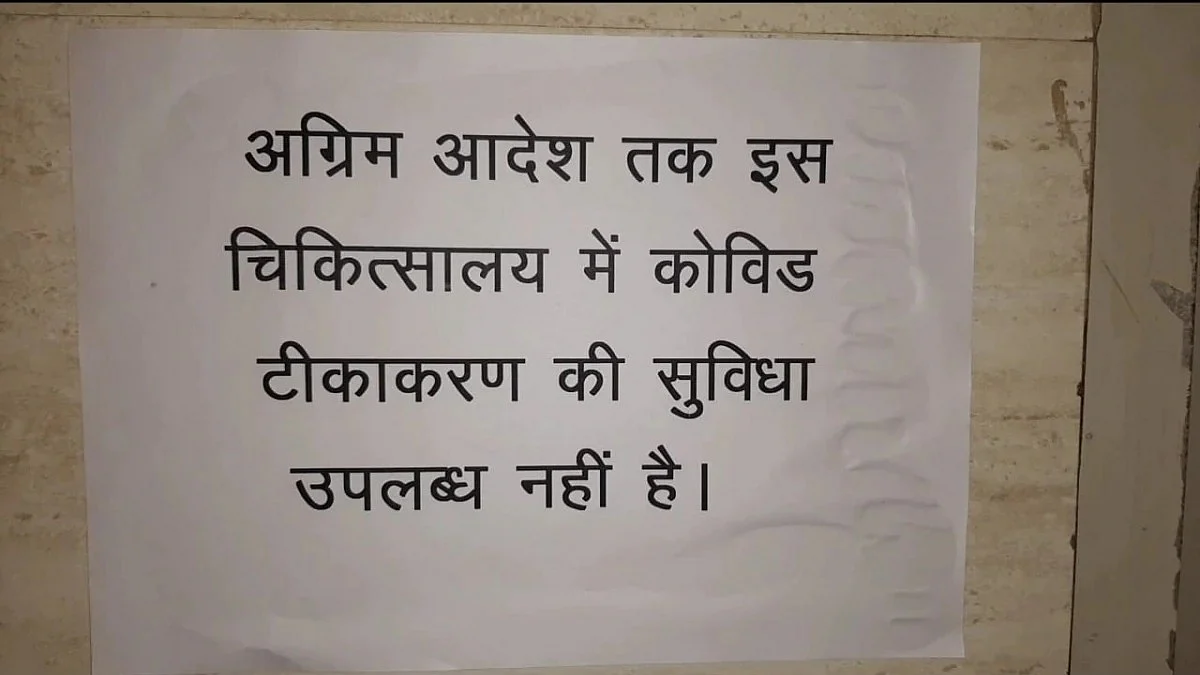 अग्रिम आदेश तक इस
चिकित्सालय में कोविड
टीकाकरण की सुविधा
उपलब्ध नहीं है।